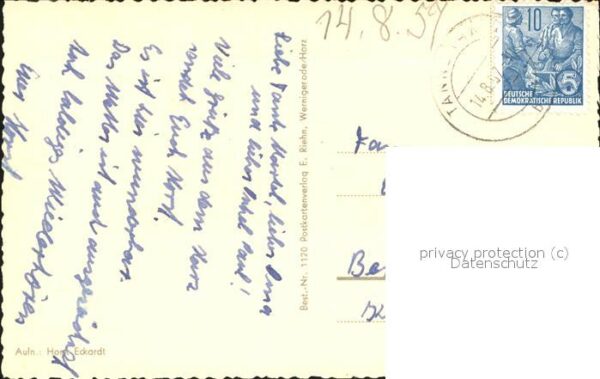 Liebe Tante Martel, liebe Oma
und lieber Onkel Paul!
Viele Grüße aus dem Harz
sendet Euch Horst.
Es ist hier wunderbar.
Das Wetter ist auch ausgezeichnet
Auf baldiges Wiedersehen
Euer Horst
Aufn.: Horst Eckardt
Best.-Nr. 1120 Postkartenverlag E. Riehn, Wernigerode/Harz
14.8.57
TANNE
14.8.57
10
5
DEUTSCHE
DEMOKRATISCHE REPUBLIK
Fa
Be
privacy protection (c)
Datenschutz